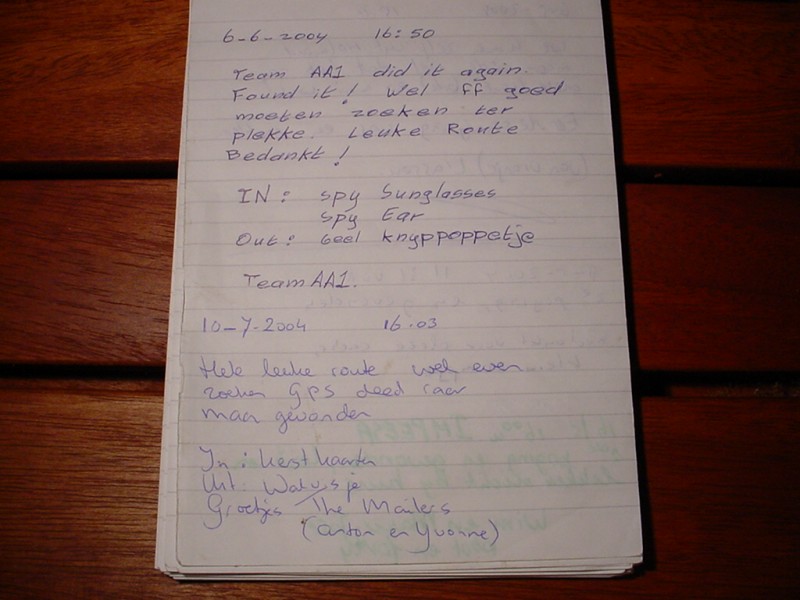 6-6-2004 16:50
Team AA1 did it again.
Found it! Wel ff goed
moeten zoeken ter
plekke. Leuke Route
Bedankt!
IN: spy Sunglasses
spy Ear
Out: Geel knyppoppetje
Team AA1.
10-7-2004 16.03
Hele leuke route wel even
zoeken GPS deed raar
maar gevonden
In: kerst kaarten
Uit: Walvisje
Groetjes The Mailers
(Anton en Yvonne)